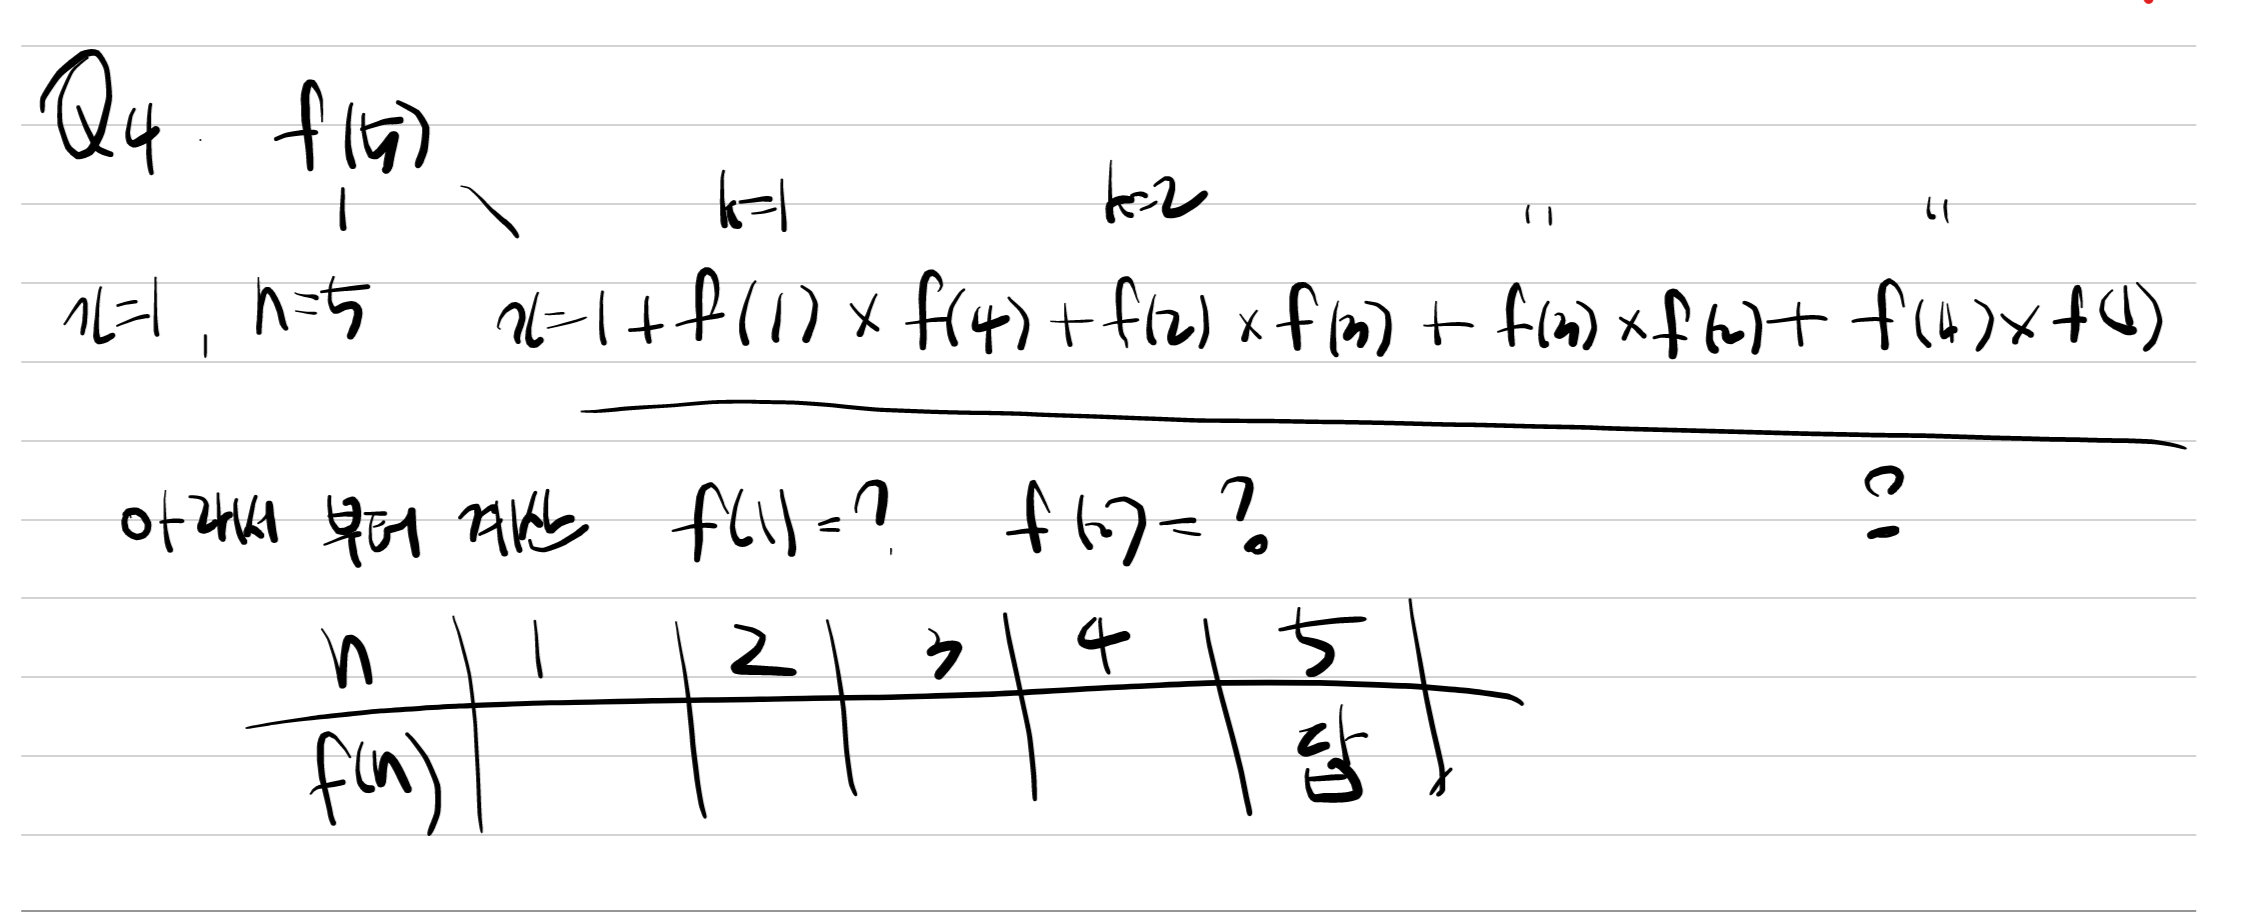 Q4. f(5)
k=1 k=2 " "
x=1, n=5 x=1+f(1)×f(4)+f(2)×f(3)+f(3)×f(2)+f(4)×f(1)
아래서 부터 계산 f(1)=? f(2)=? ?
n 1 2 3 4 5
f(n) 답